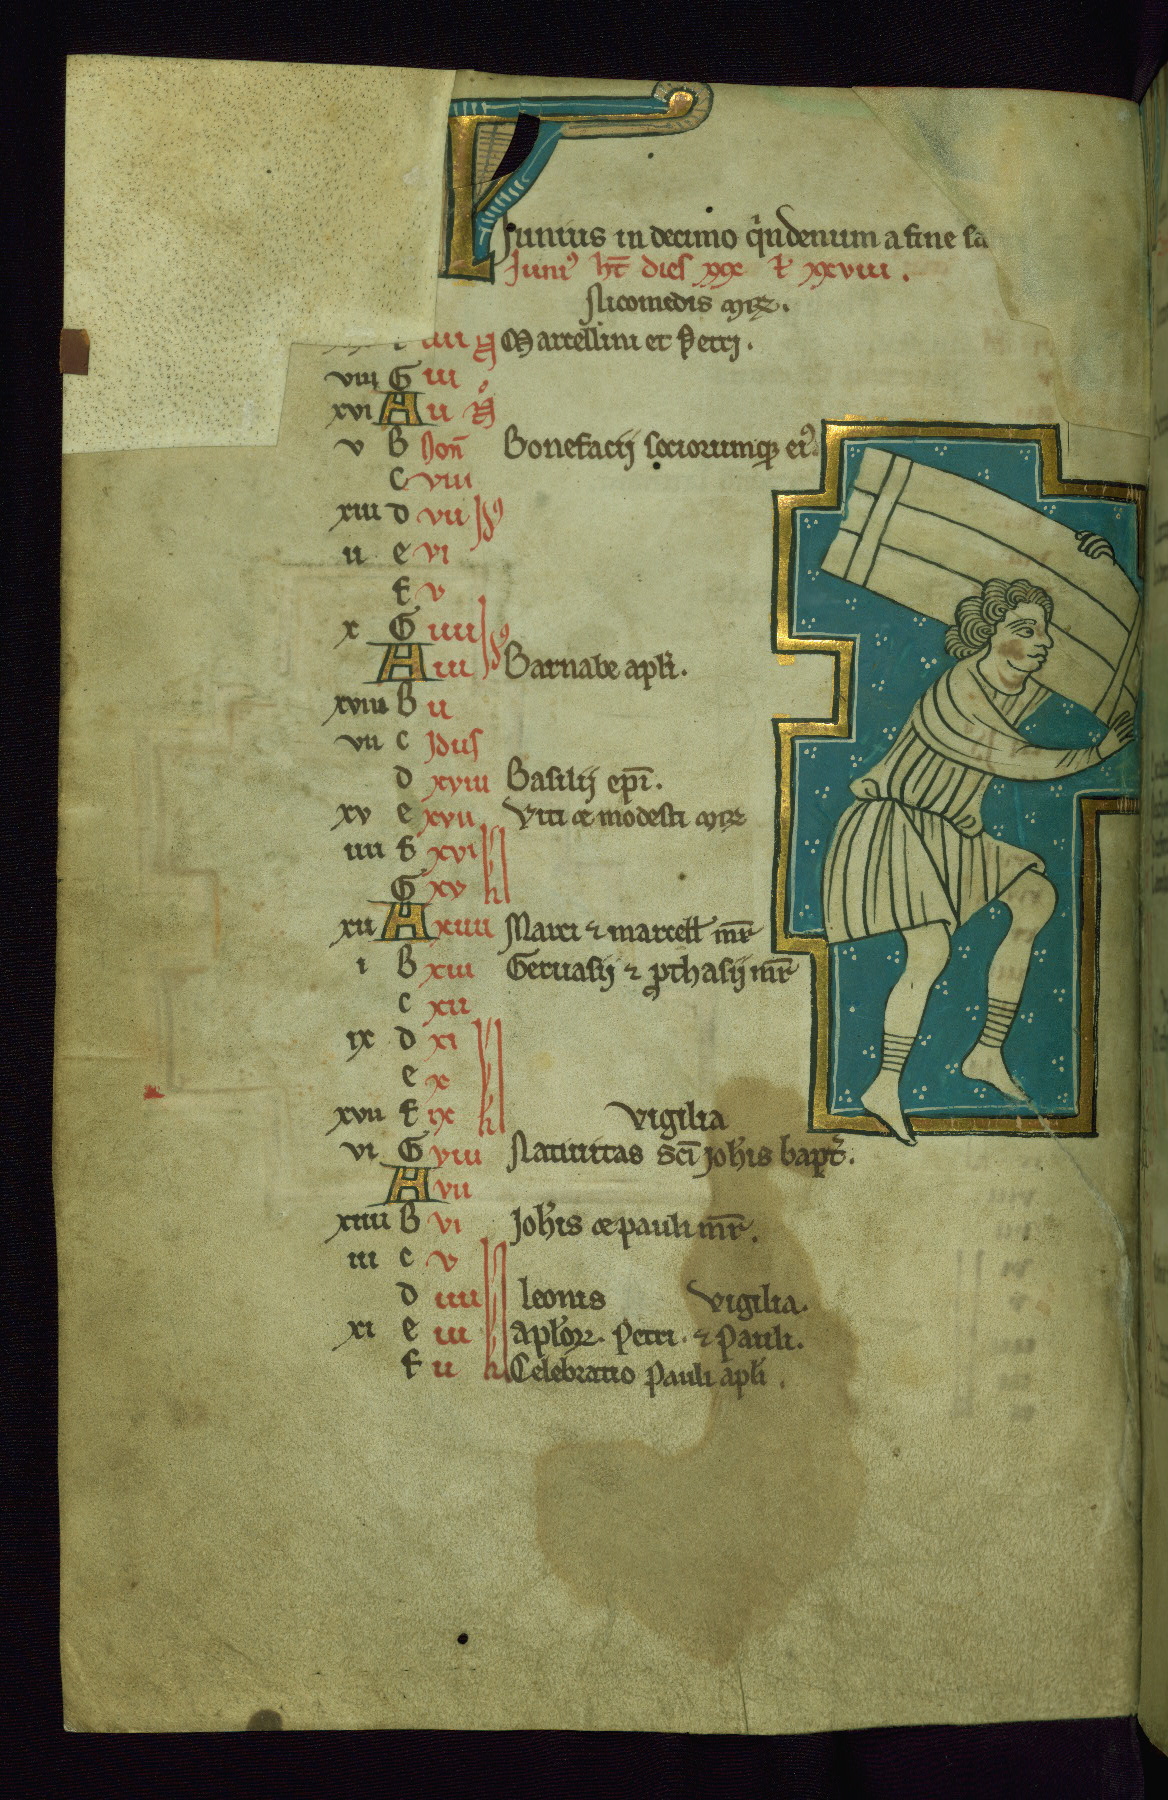 Junius in decimo q̄ndenum a fine sa
Juniꝰ ht̄ dies xxx ł xxviii .
Nicomedis mr̄.
iiii Marcellini et Petri .
viii G iii
xvi A ii
v B Non̄ Bonefacij sociorumq; eiꝰ.
C viii
xiii d vii
ii e vi
f v
x G iiii
A iii Barnabe apłi.
xviii B ii
vii c Jdus
d xviii Basilij ep̄i.
xv e xvii Viti ⁊ modesti mr̄
iiii f xvi
G xv
xii A xiiii Marci ⁊ marcelł mr̄
i B xiii Geruasij ⁊ ꝓthasij mr̄
c xii
ix d xi
e x
xvii f ix Vigilia
vi G viii Natiuitas sc̄i Joħis bapt̄.
A vii
xiiii B vi Joħis ⁊ pauli mr̄.
iii c v
d iiii leonis Vigilia.
xi e iii apłoꝝ. Petri. ⁊ Pauli.
f ii Celebratio Pauli apłi .